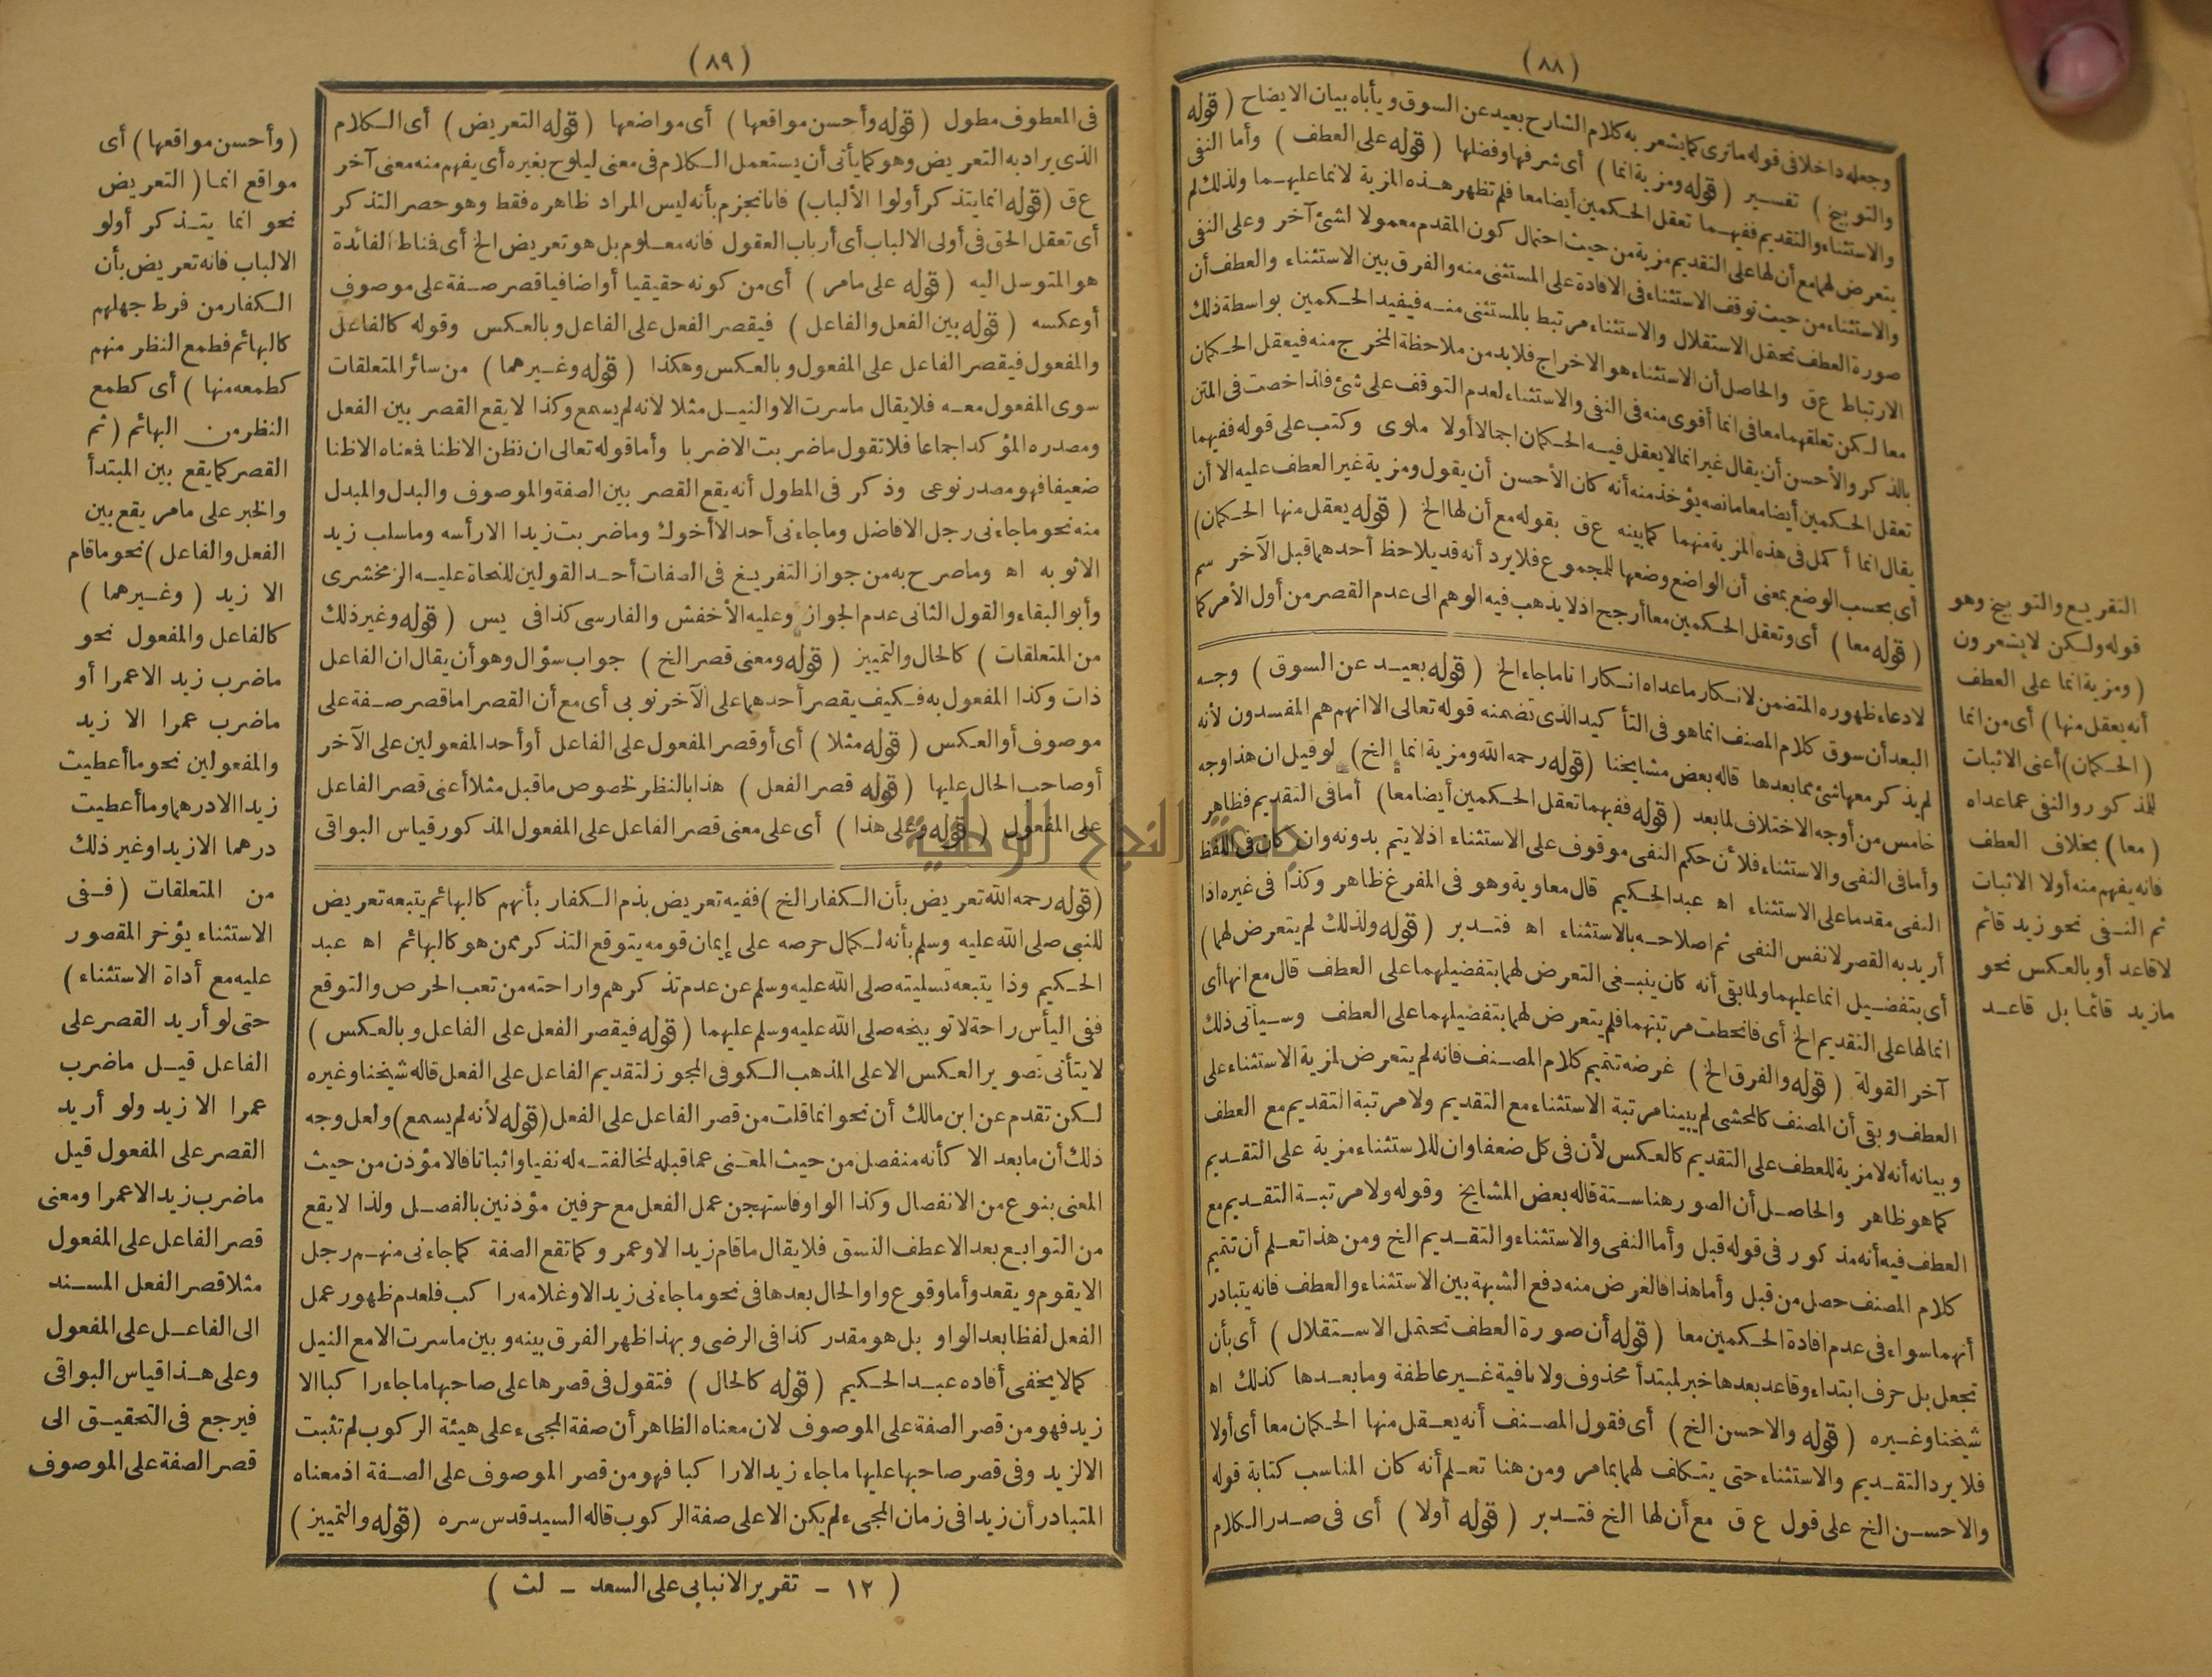 (٨٨)
وجعله داخلا فى قوله ماترى كما يشعر به كلام الشارح بعيد عن السوق ويأباه بيان الايضاح (قوله
والتوبيخ) تفسير (قوله ومزية انما) أى شرفها وفضلها (قوله على العطف) وأما النفى
والاستثناء والتقديم ففيهما تعقل الحكمين أيضا معا فلم تظهر هذه المزية لانما عليهما ولذلك لم
يتعرض لهما مع أن لها على التقديم مزية من حيث احتمال كون المقدم معمولا لشئ آخر وعلى النفى
والاستثناء من حيث توقف الاستثناء فى الافادة على المستثنى منه والفرق بين الاستثناء والعطف أن
صورة العطف تحتمل الاستقلال والاستثناء مرتبط بالمستثنى منه فيفيد الحكمين بواسطة ذلك
الارتباط ع ق والحاصل أن الاستثناء هو الاخراج فلابد من ملاحظة المخرج منه فيعقل الحكمان
معا لكن تعلقهما معا فى انما أقوى منه فى النفى والاستثناء لعدم التوقف على شئ فلذا خصت فى المتن
بالذكر والأحسن أن يقال غير انما لا يعقل فيه الحكمان اجمالا أولا ملوى وكتب على قوله ففيهما
تعقل الحكمين أيضا معا مانصه يؤخذ منه أنه كان الأحسن أن يقول ومزية غير العطف عليه الا أن
يقال انما أكمل فى هذه المزية منهما كما بينه ع ق بقوله مع أن لها الخ (قوله يعقل منها الحكمان)
أى بحسب الوضع بمعنى أن الواضع وضعها للمجموع فلا يرد أنه قد يلاحظ أحدهما قبل الآخر سم
(قوله معا) أى وتعقل الحكمين معا أرجح اذ لا يذهب فيه الوهم الى عدم القصر من أول الأمر كما
لادعاء ظهوره المتضمن لانكار ماعداه انكارا تاما جاء الخ (قوله بعيد عن السوق) وجه
البعد أن سوق كلام المصنف انما هو فى التأكيد الذى تضمنه قوله تعالى الا انهم هم المفسدون لأنه
لم يذكر معها شئ مما بعدها قاله بعض مشايخنا (قوله رحمه الله ومزية انما الخ) لو قيل ان هذا وجه
خامس من أوجه الاختلاف لما بعد (قوله ففيهما تعقل الحكمين أيضا معا) أما فى التقديم فظاهر
وأما فى النفى والاستثناء فلأن حكم النفى موقوف على الاستثناء اذ لا يتم بدونه وان كان فى اللفظ
النفى مقدما على الاستثناء اه عبد الحكيم قال معاوية وهو فى المفرغ ظاهر وكذا فى غيره اذا
أريد به القصر لا نفس النفى ثم اصلاحه بالاستثناء اه فتدبر (قوله ولذلك لم يتعرض لهما)
أى بتفضيل انما عليهما ولما بقى أنه كان ينبغى التعرض لهما بتفضيلهما على العطف قال مع انها أى
انما لها على التقديم الخ أى فانحطت مرتبتهما فلم يتعرض لهما بتفضيلهما على العطف وسيأتى ذلك
آخر القولة (قوله والفرق الخ) غرضه تتميم كلام المصنف فانه لم يتعرض لمزية الاستثناء على
العطف وبقى أن المصنف كالمحشى لم يبينا مرتبة الاستثناء مع التقديم ولا مرتبة التقديم مع العطف
وبيانه أنه لا مزية للعطف على التقديم كالعكس لأن فى كل ضعفا وان للاستثناء مزية على التقديم
كما هو ظاهر والحاصل أن الصور هنا ستة قاله بعض المشايخ وقوله ولا مرتبة التقديم مع
العطف فيه أنه مذكور فى قوله قبل وأما النفى والاستثناء والتقديم الخ ومن هذا تعلم أن تتميم
كلام المصنف حصل من قبل وأما هذا فالغرض منه دفع الشبهة بين الاستثناء والعطف فانه يتبادر
أنهما سواء فى عدم افادة الحكمين معا (قوله أن صورة العطف تحتمل الاستقلال) أى بأن
تجعل بل حرف ابتداء وقاعد بعدها خبر لمبتدأ محذوف ولا نافية غير عاطفة وما بعدها كذلك اه
شيخنا وغيره (قوله والاحسن الخ) أى فقول المصنف أنه يعقل منها الحكمان معا أى أولا
فلا يرد التقديم والاستثناء حتى يتكلف لهما بما مر ومن هنا تعلم أنه كان المناسب كتابة قوله
والاحسن الخ على قول ع ق مع أن لها الخ فتدبر (قوله أولا) أى فى صدر الكلام
التقريع والتوبيخ وهو
قوله ولكن لا يشعرون
(ومزية انما على العطف
أنه يعقل منها) أى من انما
(الحكمان) أعنى الاثبات
للمذكور والنفى عما عداه
(معا) بخلاف العطف
فانه يفهم منه أولا الاثبات
ثم النفى نحو زيد قائم
لا قاعد أو بالعكس نحو
ما زيد قائما بل قاعد
(٨٩)
فى المعطوف مطول (قوله وأحسن مواقعها) أى مواضعها (قوله التعريض) أى الكلام
الذى يراد به التعريض وهو كما يأتى أن يستعمل الكلام فى معنى ليلوح بغيره أى يفهم منه معنى آخر
ع ق (قوله انما يتذكر أولوا الألباب) فانا نجزم بأنه ليس المراد ظاهره فقط وهو حصر التذكر
أى تعقل الحق فى أولى الالباب أى أرباب العقول فانه معلوم بل هو تعريض الخ أى فناط الفائدة
هو المتوسل اليه (قوله على مامر) أى من كونه حقيقيا أو اضافيا قصر صفة على موصوف
أو عكسه (قوله بين الفعل والفاعل) فيقصر الفعل على الفاعل وبالعكس وقوله كالفاعل
والمفعول فيقصر الفاعل على المفعول وبالعكس وهكذا (قوله وغيرهما) من سائر المتعلقات
سوى المفعول معه فلا يقال ماسرت الا والنيل مثلا لأنه لم يسمع وكذا لا يقع القصر بين الفعل
ومصدره المؤكد اجماعا فلا تقول ماضربت الا ضربا وأما قوله تعالى ان نظن الا ظنا فمعناه الا ظنا
ضعيفا فهو مصدر نوعى وذكر فى المطول أنه يقع القصر بين الصفة والموصوف والبدل والمبدل
منه نحو ماجاءنى رجل الا فاضل وماجاءنى أحد الا أخوك وماضربت زيدا الا رأسه وماسلب زيد
الا ثوبه اه وماصرح به من جواز التفريغ فى الصفات أحد القولين للنحاة عليه الزمخشرى
وأبو البقاء والقول الثانى عدم الجواز وعليه الأخفش والفارسى كذا فى يس (قوله وغير ذلك
من المتعلقات) كالحال والتمييز (قوله ومعنى قصر الخ) جواب سؤال وهو أن يقال ان الفاعل
ذات وكذا المفعول به فكيف يقصر أحدهما على الآخر نوبى أى مع أن القصر اما قصر صفة على
موصوف أو العكس (قوله مثلا) أى أو قصر المفعول على الفاعل أو أحد المفعولين على الآخر
أو صاحب الحال عليها (قوله قصر الفعل) هذا بالنظر لخصوص ماقبل مثلا أعنى قصر الفاعل
على المفعول (قوله وعلى هذا) أى على معنى قصر الفاعل على المفعول المذكور قياس البواقى
(قوله رحمه الله تعريض بأن الكفار الخ) ففيه تعريض بذم الكفار بأنهم كالبهائم يتبعه تعريض
للنبى صلى الله عليه وسلم بأنه لكمال حرصه على إيمان قومه يتوقع التذكر ممن هو كالبهائم اه عبد
الحكيم وذا يتبعه تسليته صلى الله عليه وسلم عن عدم تذكرهم واراحته من تعب الحرص والتوقع
ففى اليأس راحة لا توبيخه صلى الله عليه وسلم عليهما (قوله فيقصر الفعل على الفاعل وبالعكس)
لا يتأتى تصوير العكس الا على المذهب الكوفى المجوز لتقديم الفاعل على الفعل قاله شيخنا وغيره
لكن تقدم عن ابن مالك أن نحو انما قلت من قصر الفاعل على الفعل (قوله لأنه لم يسمع) ولعل وجه
ذلك أن مابعد الا كأنه منفصل من حيث المعنى عما قبله لمخالفته له نفيا واثباتا فالا مؤذن من حيث
المعنى بنوع من الانفصال وكذا الواو فاستهجن عمل الفعل مع حرفين مؤذنين بالفصل ولذا لا يقع
من التوابع بعد الا عطف النسق فلا يقال ماقام زيدا الا وعمر وكما تقع الصفة كما جاءنى منهم رجل
الا يقوم ويقعد وأما وقوع واو الحال بعدها فى نحو ماجاءنى زيد الا وغلامه راكب فلعدم ظهور عمل
الفعل لفظا بعد الواو بل هو مقدر كذا فى الرضى وبهذا ظهر الفرق بينه وبين ماسرت الا مع النيل
كما لا يخفى أفاده عبد الحكيم (قوله كالحال) فتقول فى قصرها على صاحبها ماجاء راكبا الا
زيد فهو من قصر الصفة على الموصوف لان معناه الظاهر أن صفة المجىء على هيئة الركوب لم تثبت
الا لزيد وفى قصر صاحبها عليها ماجاء زيد الا راكبا فهو من قصر الموصوف على الصفة اذ معناه
المتبادر أن زيدا فى زمان المجىء لم يكن الا على صفة الركوب قاله السيد قدس سره (قوله والتمييز)
(وأحسن مواقعها) أى
مواقع انما (التعريض
نحو انما يتذكر أولو
الالباب فانه تعريض بأن
الكفار من فرط جهلهم
كالبهائم فطمع النظر منهم
كطمعه منها) أى كطمع
النظر من البهائم (ثم
القصر كما يقع بين المبتدأ
والخبر على مامر يقع بين
الفعل والفاعل) نحو ماقام
الا زيد (وغيرهما)
كالفاعل والمفعول نحو
ماضرب زيد الا عمرا أو
ماضرب عمرا الا زيد
والمفعولين نحو ما أعطيت
زيدا الا درهما وما أعطيت
درهما الا زيدا وغير ذلك
من المتعلقات (ففى
الاستثناء يؤخر المقصور
عليه مع أداة الاستثناء)
حتى لو أريد القصر على
الفاعل قيل ماضرب
عمرا الا زيد ولو أريد
القصر على المفعول قيل
ماضرب زيد الا عمرا ومعنى
قصر الفاعل على المفعول
مثلا قصر الفعل المسند
الى الفاعل على المفعول
وعلى هذا قياس البواقى
فيرجع فى التحقيق الى
قصر الصفة على الموصوف
(١٢ - تقرير الانبابى على السعد - لث)
النجاح الوطنية